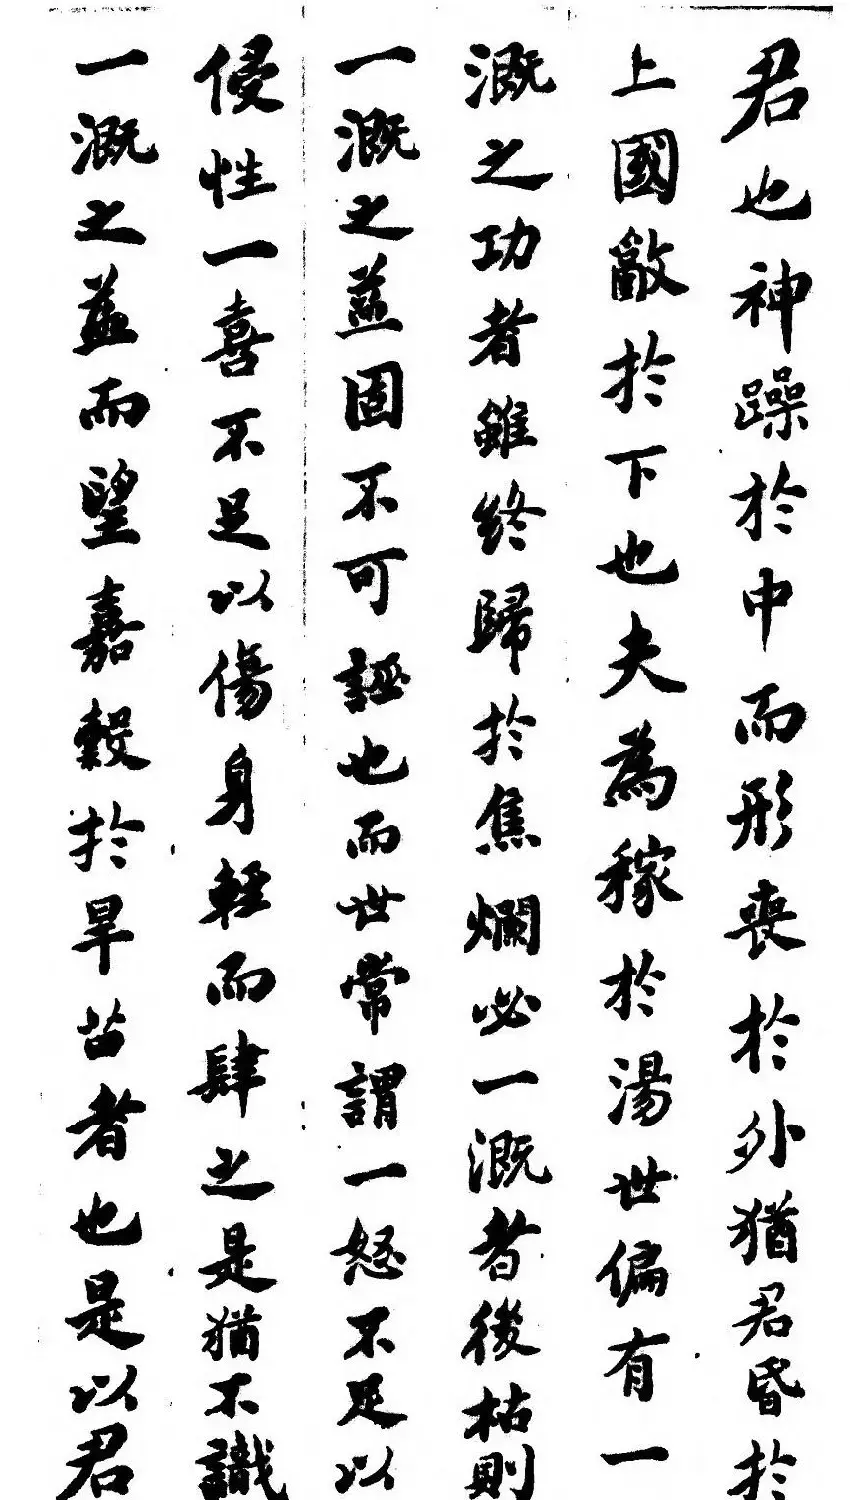 君也神躁於中而形喪於外猶君昏於
上國亂於下也夫為稼於湯世偏有一
溉之功者雖終歸於焦爛必一溉者後枯則
一溉之益固不可誣也而世常謂一怒不足以
侵性一喜不足以傷身輕而肆之是猶不識
一溉之益而望嘉穀於旱苗者也是以君